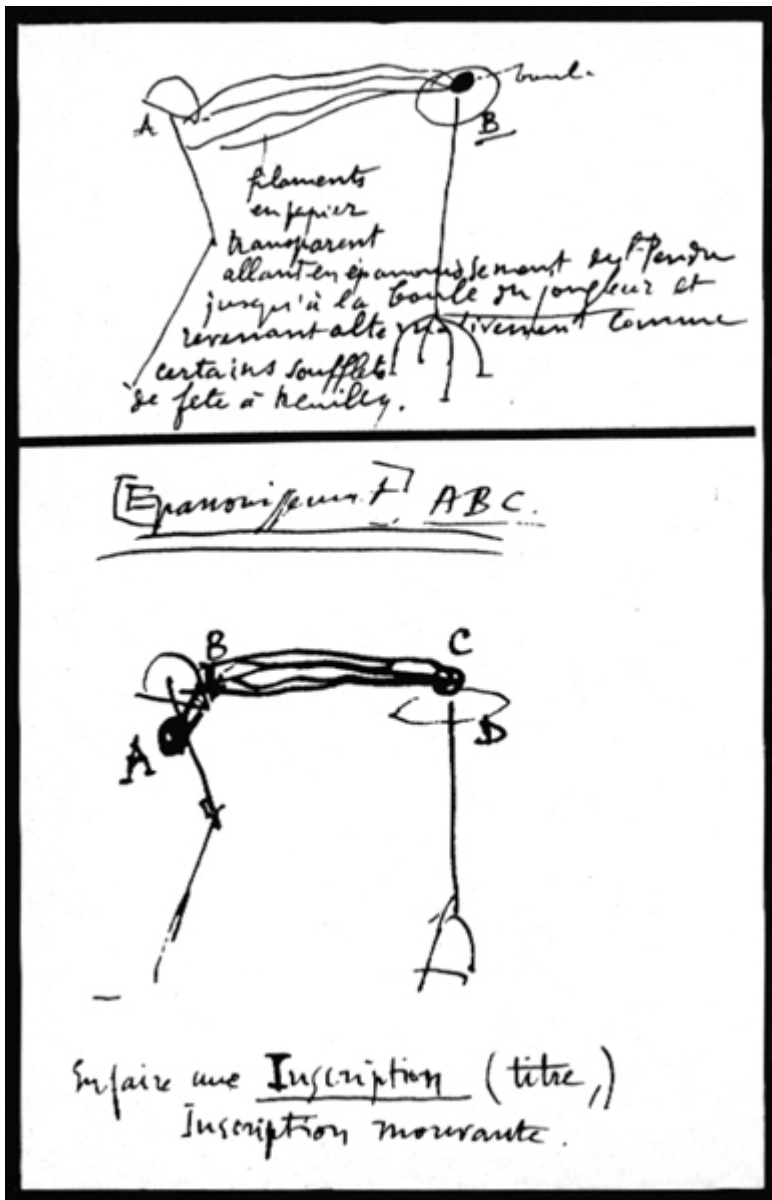 boule
A
B
filaments
en papier
transparent
allant en épanouissement du Pendu
jusqu'à la boule du jongleur et
revenant alternativement comme
certains soufflets
de fete à Neuilly.
[Epanouissement] ABC.
B
C
A
D
En faire une Inscription (titre,)
Inscription mouvante.